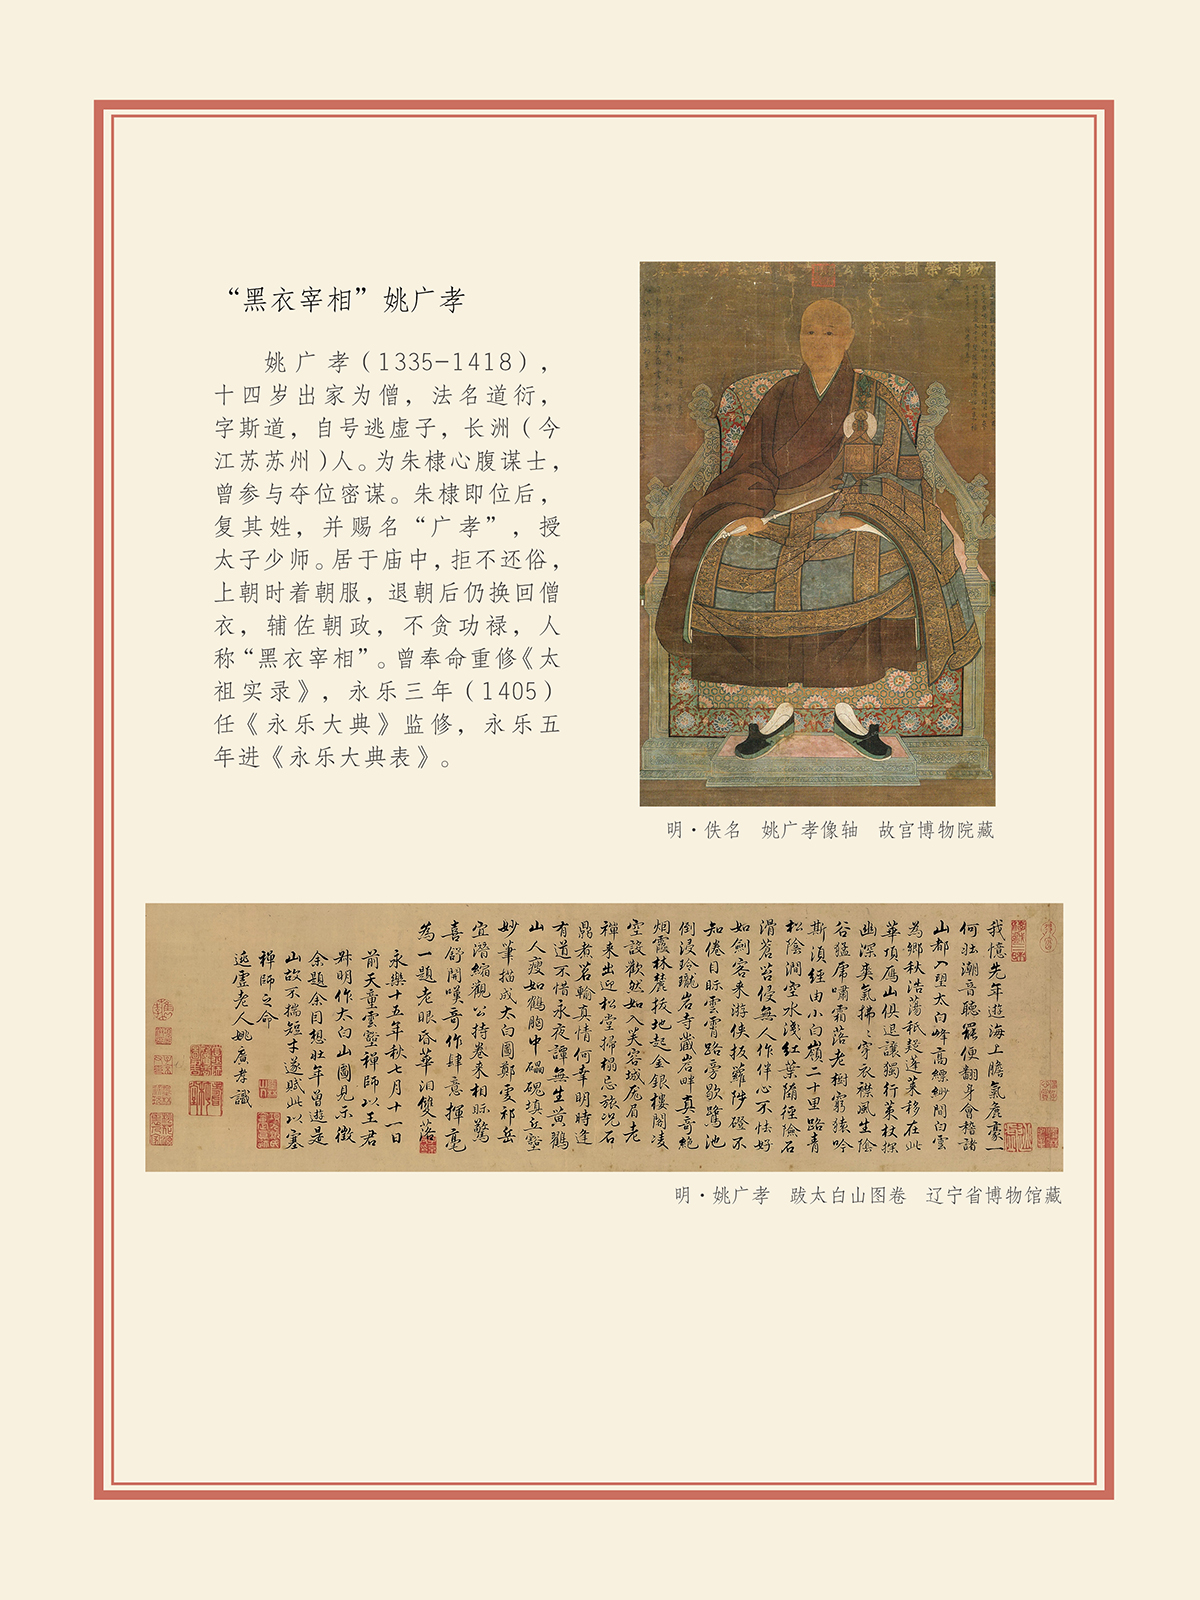 “黑衣宰相”姚广孝
姚广孝（1335-1418），
十四岁出家为僧，法名道衍，
字斯道，自号逃虚子，长洲（今
江苏苏州）人。为朱棣心腹谋士，
曾参与夺位密谋。朱棣即位后，
复其姓，并赐名“广孝”，授
太子少师。居于庙中，拒不还俗，
上朝时着朝服，退朝后仍换回僧
衣，辅佐朝政，不贪功禄，人
称“黑衣宰相”。曾奉命重修《太
祖实录》，永乐三年（1405）
任《永乐大典》监修，永乐五
年进《永乐大典表》。
明·佚名 姚广孝像轴 故宫博物院藏
我憶先年遊海上膽氣麄豪一
何壯潮音聽罷便翻身會稽諸
山都入望太白峰高縹緲間白雲
為鄉秋浩蕩秖疑蓬萊移在此
華頂鴈山俱退讓獨行策杖探
幽深爽氣拂：穿衣襟風生陰
谷猛虎嘯霜落老樹窮猿吟
斯須經由小白嶺二十里路青
松陰澗空水淺紅葉隨徑險石
滑蒼苔侵無人作伴心不怯好
如劍客來游俠扳蘿陟磴不
知倦目眎雲霄路旁歇鷺池
倒浸玲瓏岩寺藏岩畔真奇絕
烟霞林麓拔地起金銀樓閣凌
空設歡然如入芙容城厖眉老
禪来出迎松堂掃榻忘旅况石
鼎煮茗輸真情何幸明時逢
有道不惜永夜譚無生黄鶴
山人瘦如鶴胸中磊磈填丘壑
妙筆描成太白圖鄭虔祁岳
宜潛縮觀公持卷来相眎驚
喜舒開嘆奇作肆意揮毫
為一題老眼昏華泪雙落
永樂十五年秋七月十一日
前天童雲壑禪師以王君
叔明作太白山圖見示徵
余題余因想壯年曾遊是
山故不揣短才遂賦此以塞
禪師之命
逃虛老人姚廣孝識
明·姚广孝 跋太白山图卷 辽宁省博物馆藏